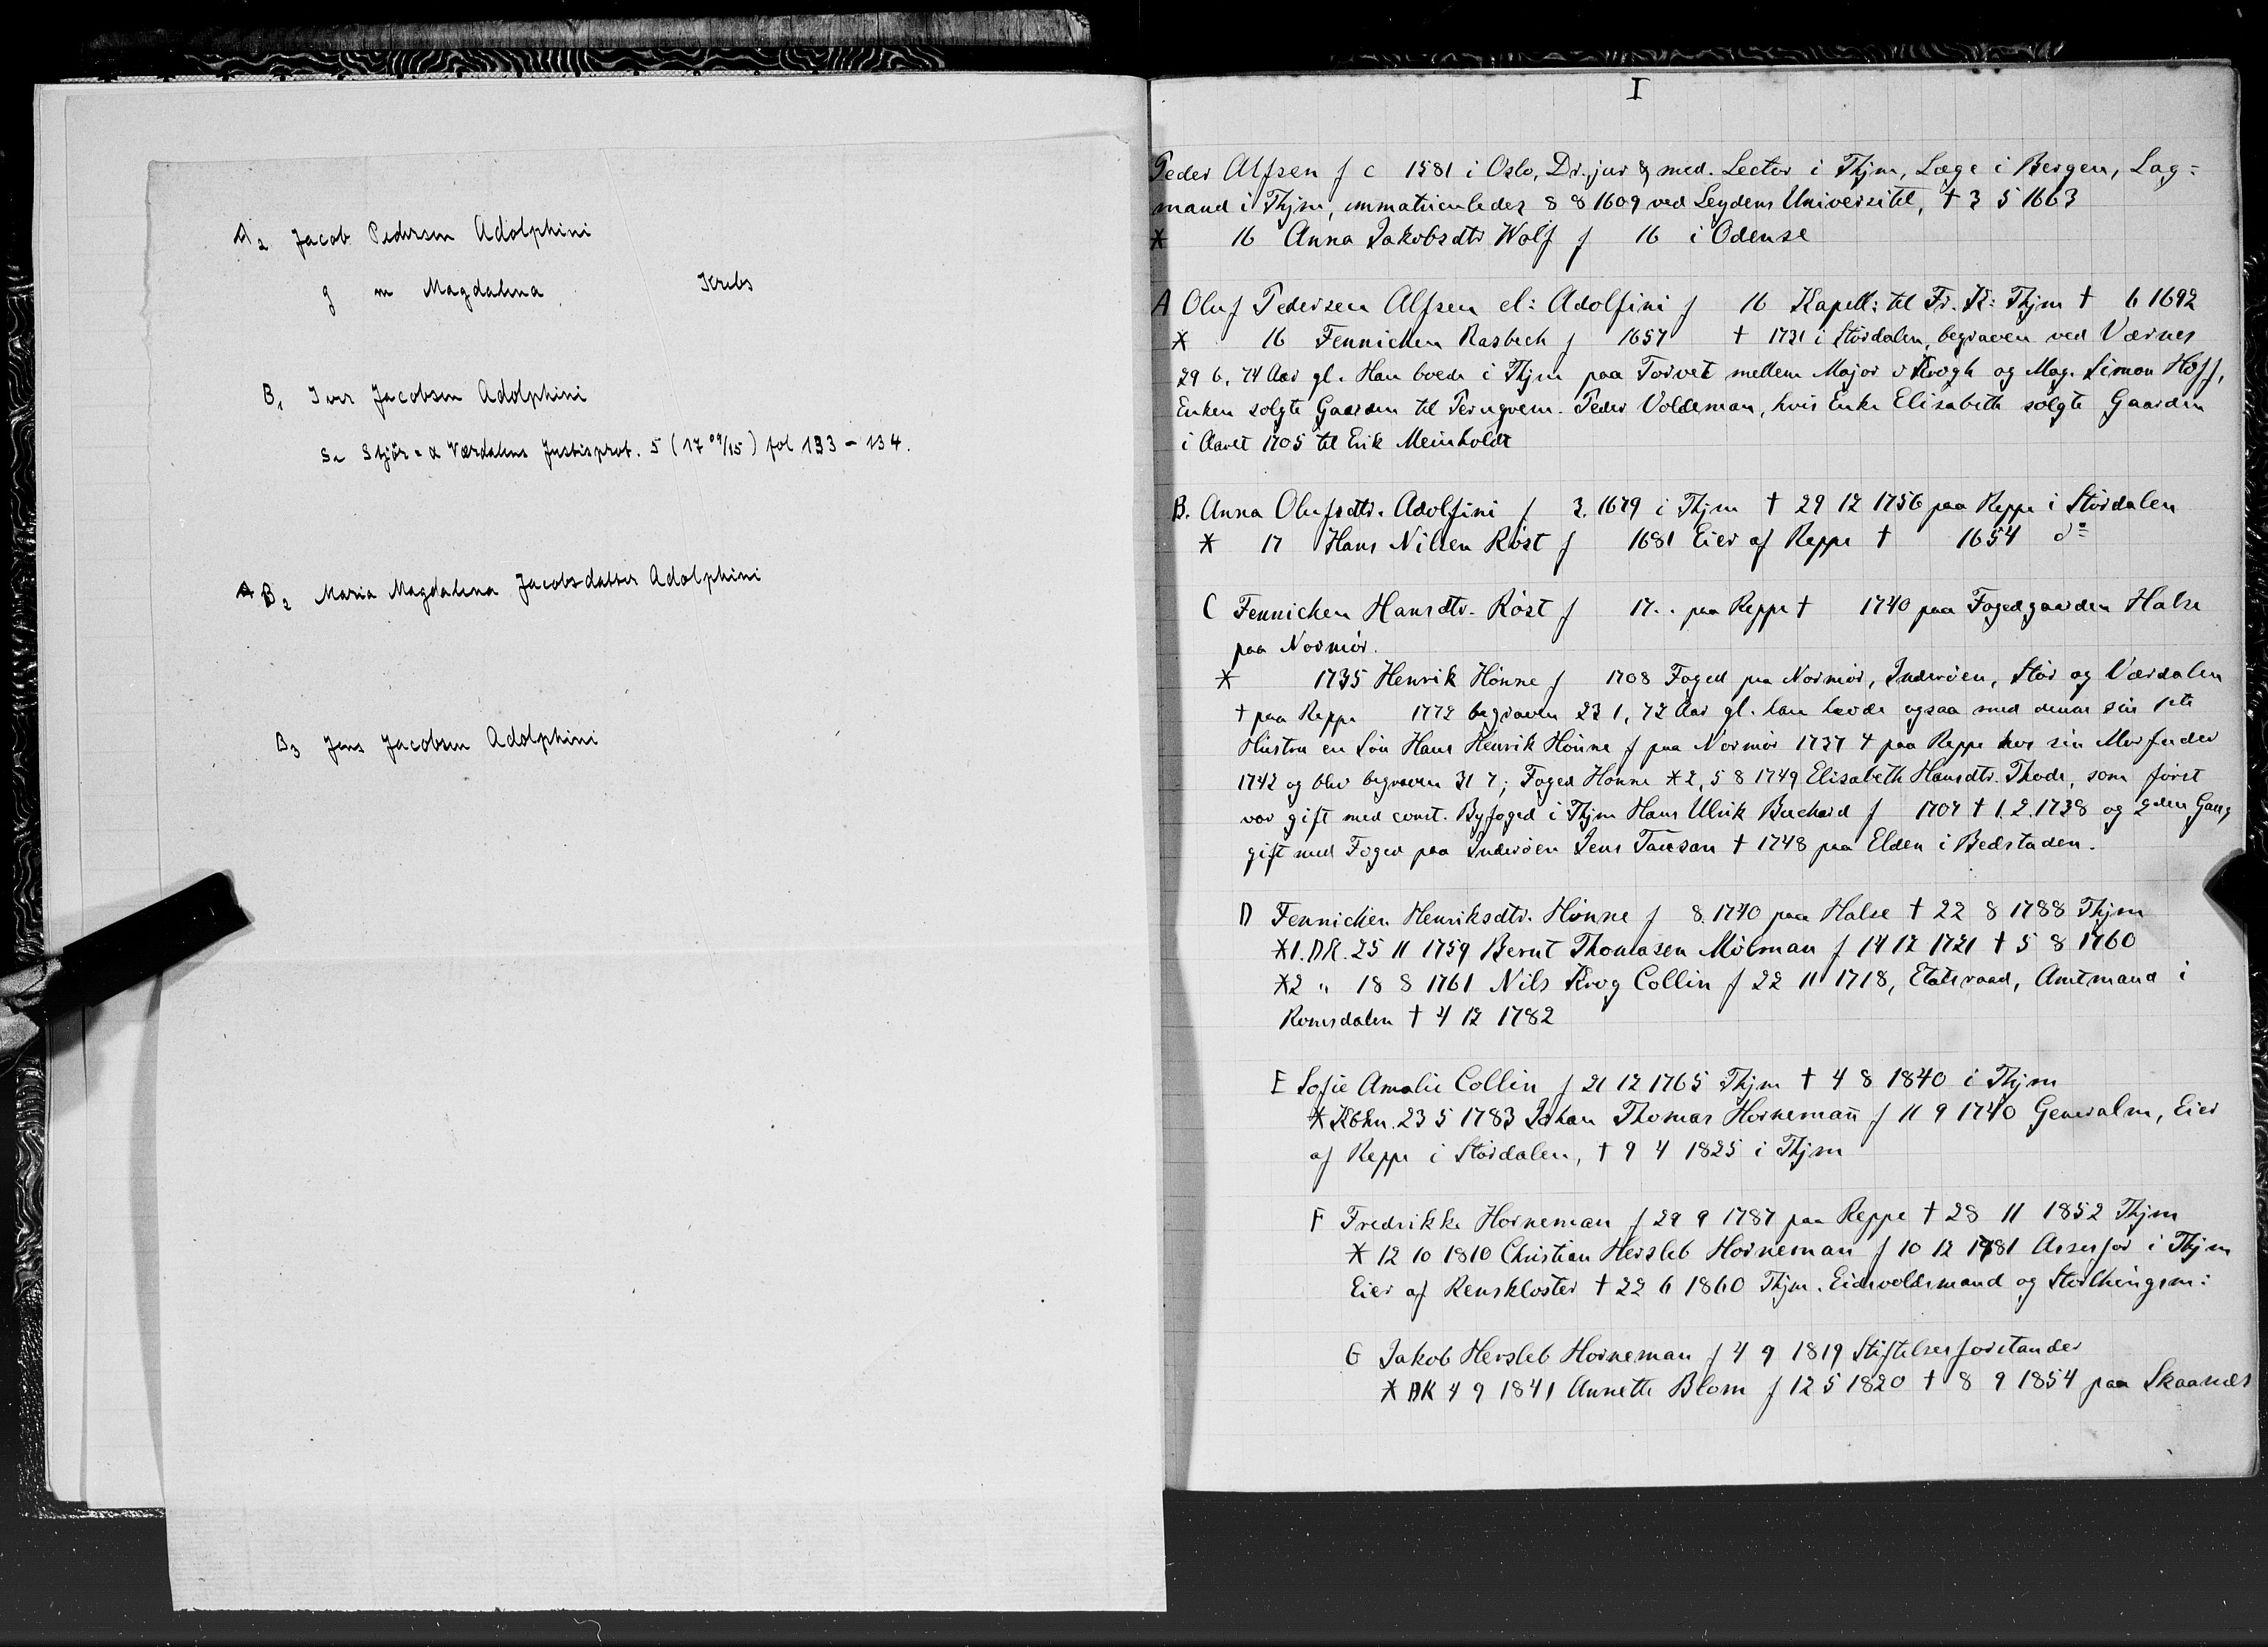 A2 Jacob Pedersen Adolphini
g m Magdalena Krebs
B1 Iver Jacobsen Adolphini
Se Stjør- & Værdalens Justisprot. 5 (17 09/15) fol 133 - 134.
B2 Maria Magdalena Jacobsdatter Adolphini
B3 Jens Jacobsen Adolphini
I
Peder Alfsen f c 1581 i Oslo, Dr. jur & med. Lector i Thjm, Læge i Bergen, Lag=
mand i Thjm, immatriculeder 8 8 1609 ved Leydens Universitet, † 3 5 1663
* 16 Anna Jakobsdtr Wolf f 16 i Odense
A Oluf Pedersen Alfsen el: Adolfini f 16 Kapell: til Fr. K: Thjm † 6 1692
* 16 Fennichen Rasbech f 1657 † 1731 i Stördalen, begraven ved Værnes
29 6, 74 Aar gl. Han boede i Thjm paa Torvet mellem Major v Krogh og Mag. Simon Hoff,
Enken solgte Gaarden til Peder Voldeman, hvis Enke Elisabeth solgte Gaarden
i Aaret 1705 til Erik Meinholdt
B. Anna Olufsdtr. Adolfini f 3. 1679 i Thjm † 29 12 1756 paa Reppe i Stördalen
* 17 Hans Nilsen Röst f 1681 Eier af Reppe † 1654 do
C Fennichen Hansdtr. Röst f 17.. paa Reppe † 1740 paa Fogedgaarden Halse
paa Normör.
* 1735 Henrik Hönne f 1708 Foged paa Normör, Inderöen, Stör og Værdalen
† paa Reppe 1772 begraven 23 1, 72 Aar gl. han havde ogsaa med denne sin 1ste
Hustru en Sön Hans Henrik Hönne f paa Normör 1737 † paa Reppe hos sin Morfader
1742 og blev begraven 31 7; Foged Hönne *2, 5 8 1749 Elisabeth Hansdtr. Thode, som först
var gift med const. Byfoged i Thjm Hans Ulrik Buchard f 1707 † 1. 2. 1738 og 2den Gang
gift med Foged paa Inderöen Jens Tausan † 1748 paa Elden i Bedstaden.
D Fennichen Henriksdtr. Hönne f 8. 1740 paa Halse † 22 8 1788 Thjm
*1. DK. 25 11 1759 Bernt Thomasen Mölman f 14 12 1721 † 5 8 1760
*2 " 18 8 1761 Nils Krog Collin f 22 11 1718, Etatsraad, Amtmand i
Romsdalen † 4 12 1782
E Sofie Amalie Collin f 21 12 1765 Thjm † 4 8 1840 i Thjm
* Kbhn. 23 5 1783 Johan Thomas Horneman̄ f 11 9 1740 Generalm, Eier
af Reppe i Stördalen, † 9 4 1825 i Thjm
F Fredrikke Horneman f 29 9 1787 paa Reppe † 28 11 1852 Thjm
* 12 10 1810 Christian Hersleb Horneman f 10 12 1781 Assessor i Thjm
Eier af Renskloster † 22 6 1860 Thjm. Eidsvoldsmand og Storthingsm:
G Jakob Hersleb Horneman f 4 9 1819 Stiftelsesforstander
* DK 4 9 1841 Annette Blom f 12 5 1820 † 8 9 1854 paa Skaanes